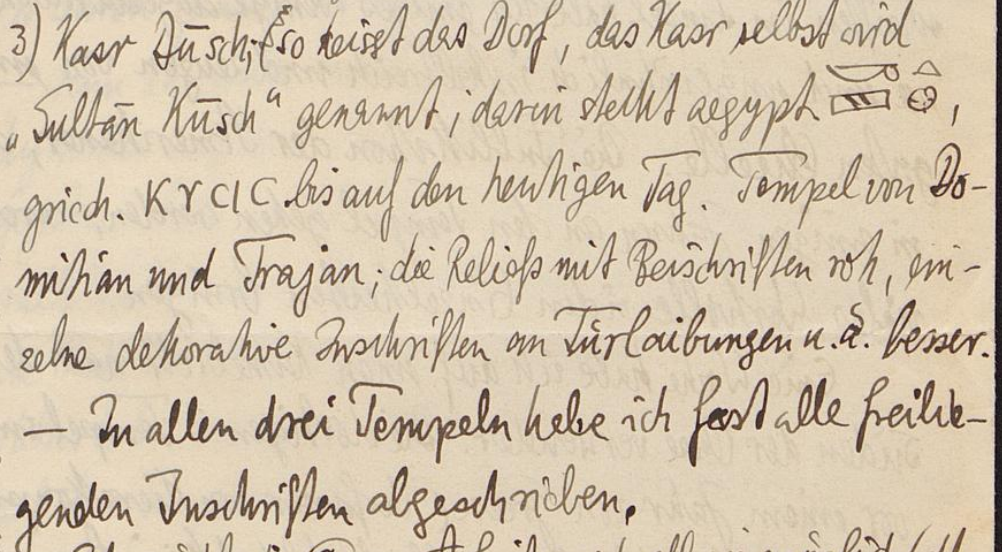 3) Kasr Dūsch; so heisst das Dorf, das Kasr selbst wird
„Sultān Kūsch“ genannt; darin steckt aegypt. 𓎡𓈙𓏏𓊖,
griech. ΚΥϹΙϹ bis auf den heutigen Tag. Tempel von Do-
mitian und Trajan; die Reliefs mit Beischriften roh, ein-
zelne dekorative Inschriften an Türlaibungen u. ä. besser.
In allen drei Tempeln habe ich fast alle freilie-
genden Inschriften abgeschrieben.